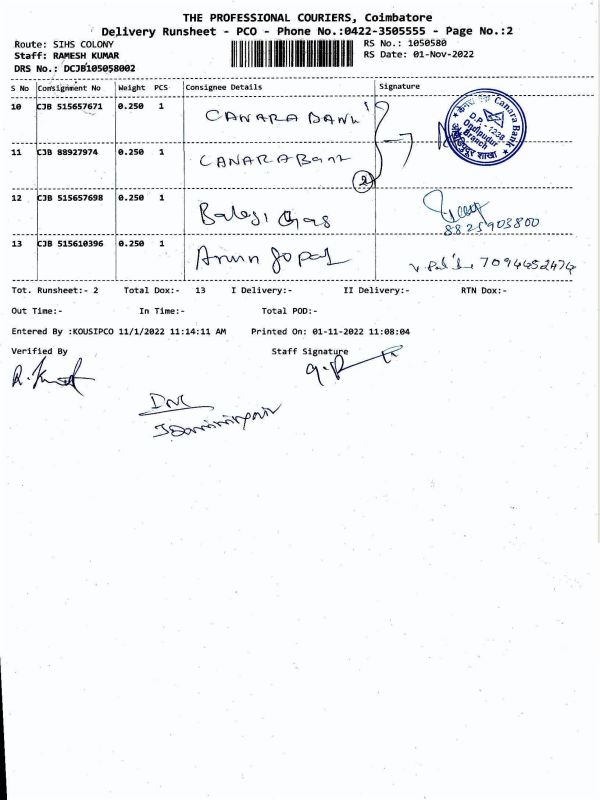 THE PROFESSIONAL COURIERS, Coimbatore
Delivery Runsheet - PCO - Phone No.:0422-3505555 - Page No.:2
Route: SIHS COLONY
Staff: RAMESH KUMAR
DRS No.: DCJB105058002
RS No.: 1050580
RS Date: 01-Nov-2022
S No Consignment No Weight PCS Consignee Details Signature
10 CJB 515657671 0.250 1 CANARA BANK
11 CJB 88927974 0.250 1 CANARA Bank
2
केनरा बैंक Canara Bank
D.P. - 1238
Ondipudur
Branch
शाखा
12 CJB 515657698 0.250 1 Balaji Gas
8825903800
13 CJB 515610396 0.250 1 Arun Gopal 7094452474
Tot. Runsheet:- 2 Total Dox:- 13 I Delivery:- II Delivery:- RTN Dox:-
Out Time:- In Time:- Total POD:-
Entered By :KOUSIPCO 11/1/2022 11:14:11 AM Printed On: 01-11-2022 11:08:04
Verified By Staff Signature